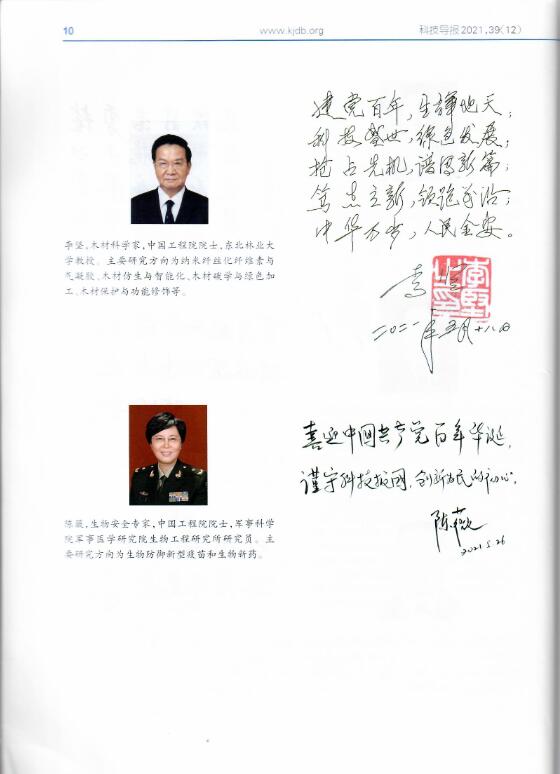 10 www.kjdb.org 科技导报2021,39(12)
建党百年,生辉地天;
科技盛世,绿色发展;
抢占先机,谱写新篇;
笃志立新,领跑前沿;
中华万岁,人民金安。
李坚
李堅之印
二〇二一年五月十八日
李坚,木材科学家,中国工程院院士,东北林业大
学教授。主要研究方向为纳米纤丝化纤维素与
气凝胶、木材仿生与智能化、木材碳学与绿色加
工、木材保护与功能修饰等。
喜迎中国共产党百年华诞,
谨守科技报国、创新为民的初心。
陈薇
2021.5.26
陈薇,生物安全专家,中国工程院院士,军事科学
院军事医学研究院生物工程研究所研究员。主
要研究方向为生物防御新型疫苗和生物新药。